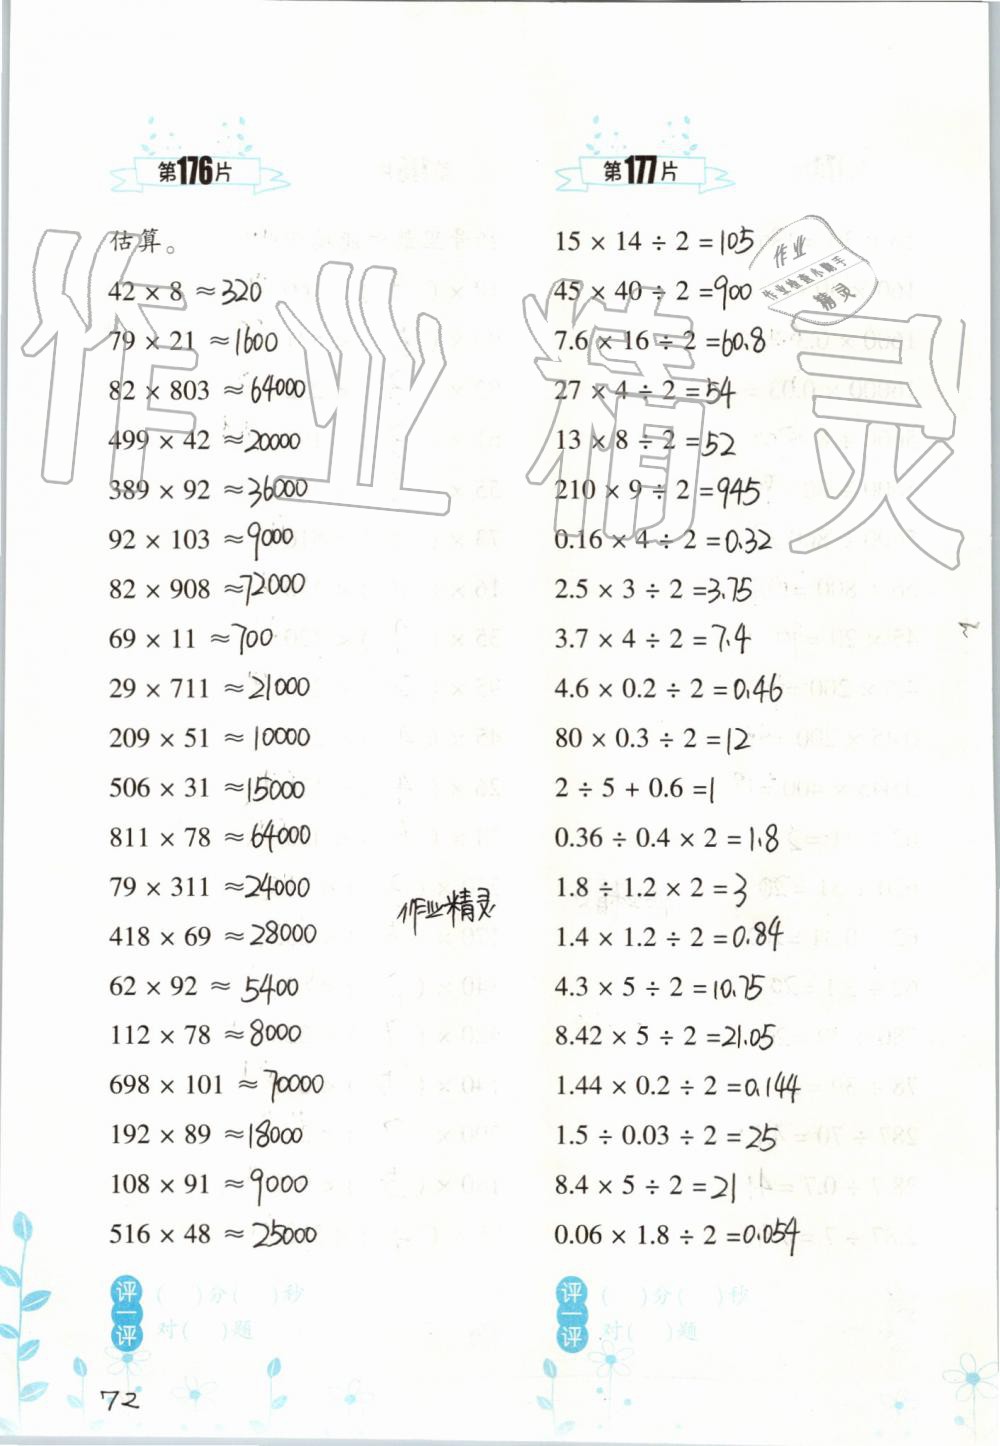 第176片
估算。
42 × 8 ≈ 320
79 × 21 ≈ 1600
82 × 803 ≈ 64000
499 × 42 ≈ 20000
389 × 92 ≈ 36000
92 × 103 ≈ 9000
82 × 908 ≈ 72000
69 × 11 ≈ 700
29 × 711 ≈ 21000
209 × 51 ≈ 10000
506 × 31 ≈ 15000
811 × 78 ≈ 64000
79 × 311 ≈ 24000
418 × 69 ≈ 28000
62 × 92 ≈ 5400
112 × 78 ≈ 8000
698 × 101 ≈ 70000
192 × 89 ≈ 18000
108 × 91 ≈ 9000
516 × 48 ≈ 25000
评一评
( )分( )秒
对( )题
72
作业精灵
第177片
15 × 14 ÷ 2 = 105
45 × 40 ÷ 2 = 900
7.6 × 16 ÷ 2 = 60.8
27 × 4 ÷ 2 = 54
13 × 8 ÷ 2 = 52
210 × 9 ÷ 2 = 945
0.16 × 4 ÷ 2 = 0.32
2.5 × 3 ÷ 2 = 3.75
3.7 × 4 ÷ 2 = 7.4
4.6 × 0.2 ÷ 2 = 0.46
80 × 0.3 ÷ 2 = 12
2 ÷ 5 + 0.6 = 1
0.36 ÷ 0.4 × 2 = 1.8
1.8 ÷ 1.2 × 2 = 3
1.4 × 1.2 ÷ 2 = 0.84
4.3 × 5 ÷ 2 = 10.75
8.42 × 5 ÷ 2 = 21.05
1.44 × 0.2 ÷ 2 = 0.144
1.5 ÷ 0.03 ÷ 2 = 25
8.4 × 5 ÷ 2 = 21
0.06 × 1.8 ÷ 2 = 0.054
评一评
( )分( )秒
对( )题
作业精灵
作业
作业检查小助手
精灵